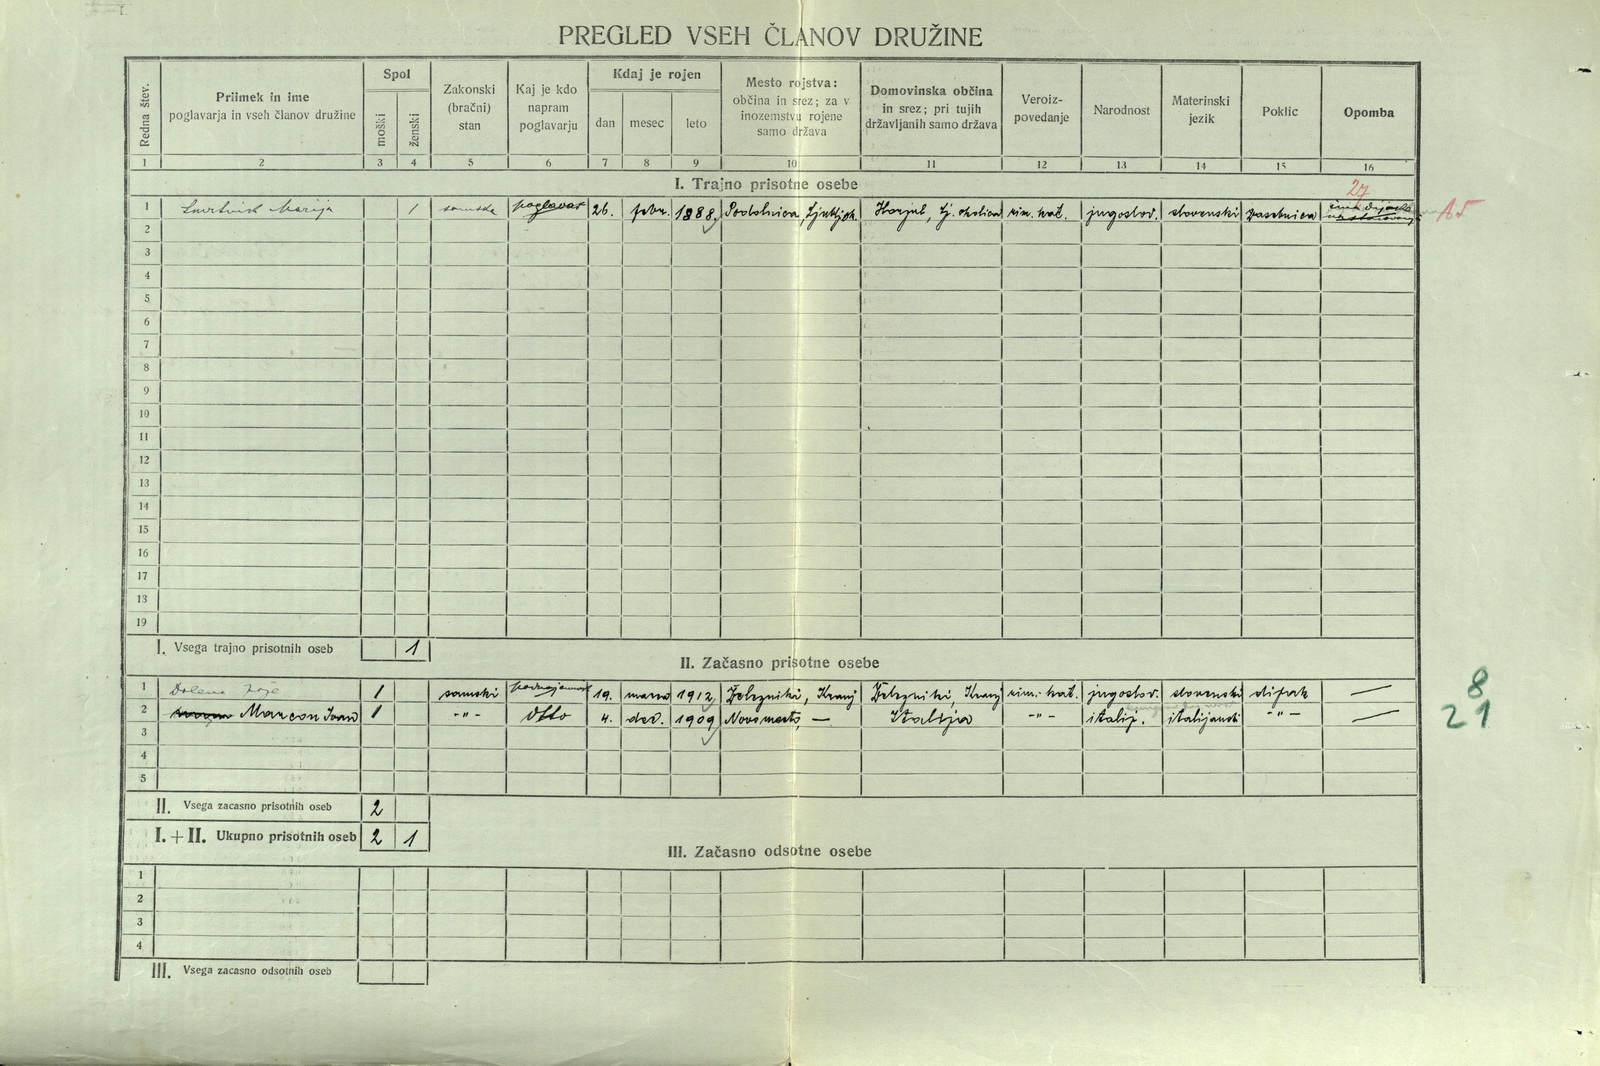 PREGLED VSEH ČLANOV DRUŽINE
Redna štev.
Priimek in ime poglavarja in vseh članov družine
Spol
moški
ženski
Zakonski (bračni) stan
Kaj je kdo napram poglavarju
Kdaj je rojen
dan mesec leto
Mesto rojstva: občina in srez; za v inozemstvu rojene samo država
Domovinska občina in srez; pri tujih državljanih samo država
Veroizpovedanje
Narodnost
Materinski jezik
Poklic
Opomba
1 2 3 4 5 6 7 8 9 10 11 12 13 14 15 16
I. Trajno prisotne osebe
27
1 Marija 1 samska poglavar 26. febr. 1888 Podolnica, Ljubljok. Horjul, Lj. okolica rim. kat. jugoslov. slovenski zasebnica
2
3
4
5
6
7
8
9
10
11
12
13
14
15
16
17
18
19
I. Vsega trajno prisotnih oseb 1
II. Začasno prisotne osebe
1 Dolenc Jože 1 samski podnajemnik 19. marca 1912 Železniki, Kranj Železniki Kranj rim. kat. jugoslov. slovenski dijak — 8
2 Marcon Ivan 1 -"- 4. dec. 1909 — Italija -"- italij. italijanski -"- — 21
3
4
5
II. Vsega zacasno prisotnih oseb 2
I.+II. Ukupno prisotnih oseb 2 1
III. Začasno odsotne osebe
1
2
3
4
III. Vsega zacasno odsotnih oseb